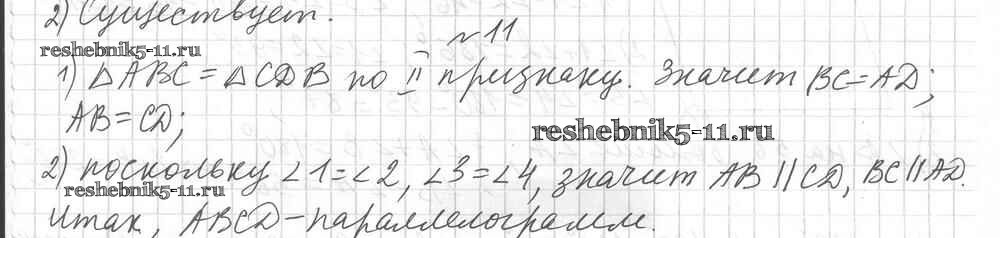 2) Существует.
№11
reshebnik5-11.ru
1) △ABC = △CDB по II признаку. Значит BC=AD;
AB=CD;
reshebnik5-11.ru
2) поскольку ∠1=∠2, ∠3=∠4, значит AB || CD, BC || AD.
reshebnik5-11.ru
Итак, ABCD - параллелограмм.